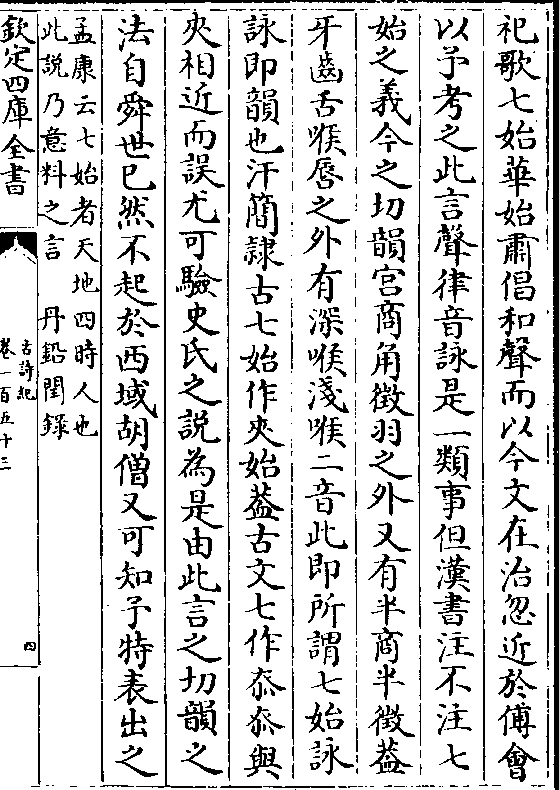 祀歌七始華始肅倡和聲而以今文在治忽近於傅會
以予考之此言聲律音詠是一類事但漢書注不注七
始之義今之切韻宮商角徵羽之外又有半商半徵葢
牙齒舌喉唇之外有深喉淺喉二音此即所謂七始詠
詠即韻也汗簡隸古七始作夾始葢古文七作桼桼與
夾相近而誤尤可驗史氏之說為是由此言之切韻之
法自舜世已然不起於西域胡僧又可知予特表出之
孟康云七始者天地四時人也
此說乃意料之言　丹鉛閏錄
欽定四庫全書
古詩紀
卷一百五十三
四